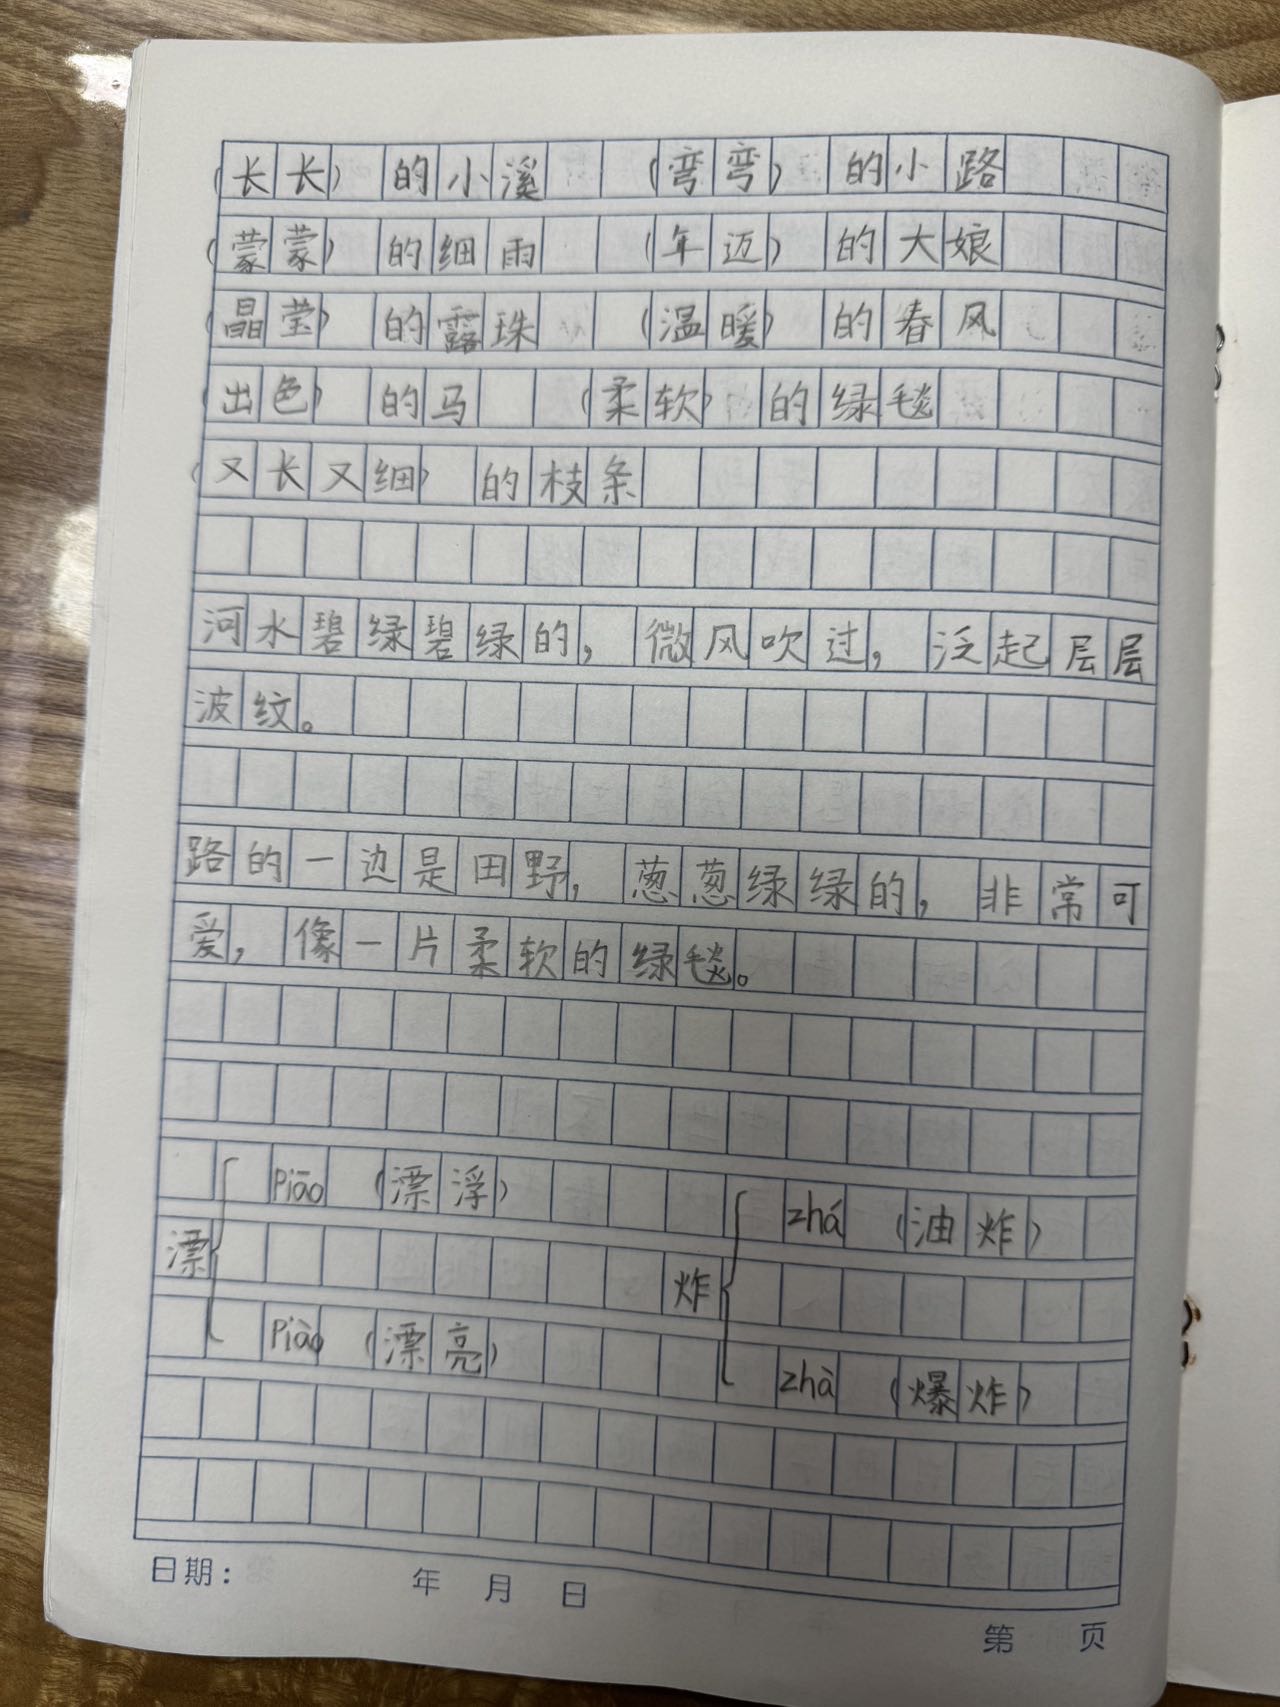 (长长) 的小溪 (弯弯) 的小路
(蒙蒙) 的细雨 (年迈) 的大娘
(晶莹) 的露珠 (温暖) 的春风
(出色) 的马 (柔软) 的绿毯
(又长又细) 的枝条
河水碧绿碧绿的，微风吹过，泛起层层
波纹。
路的一边是田野，葱葱绿绿的，非常可
爱，像一片柔软的绿毯。
漂
piāo (漂浮)
piào (漂亮)
炸
zhá (油炸)
zhà (爆炸)
日期： 年 月 日
第 页